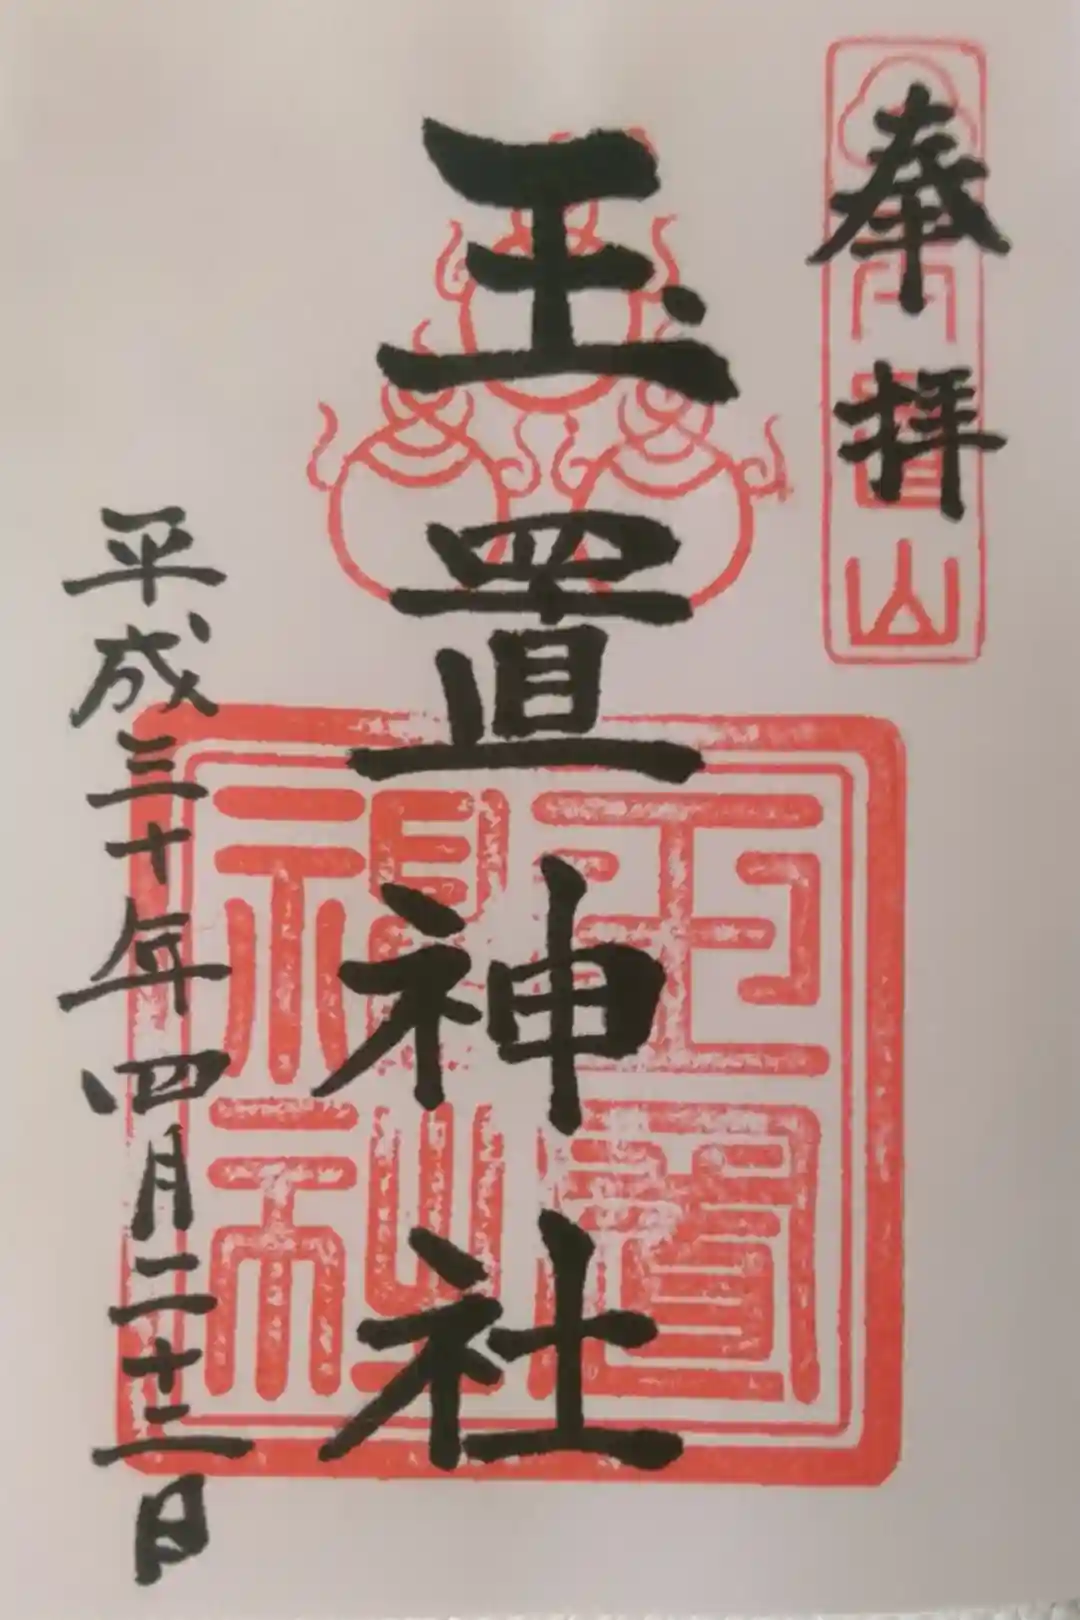 奉拝
玉置神社
平成三十年四月二十二日
玉置山
玉置神社